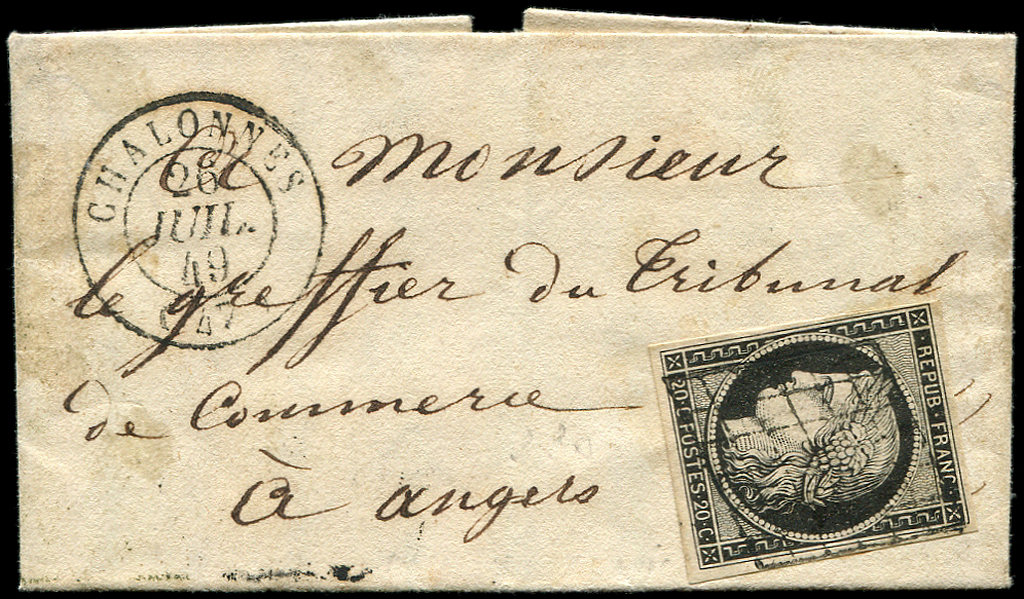 CHALONNES
26
JUIL.
49
47
A Monsieur
le greffier du Tribunal
de Commerce
à angers
REPUB. FRANC.
20.C. POSTES. 20.C